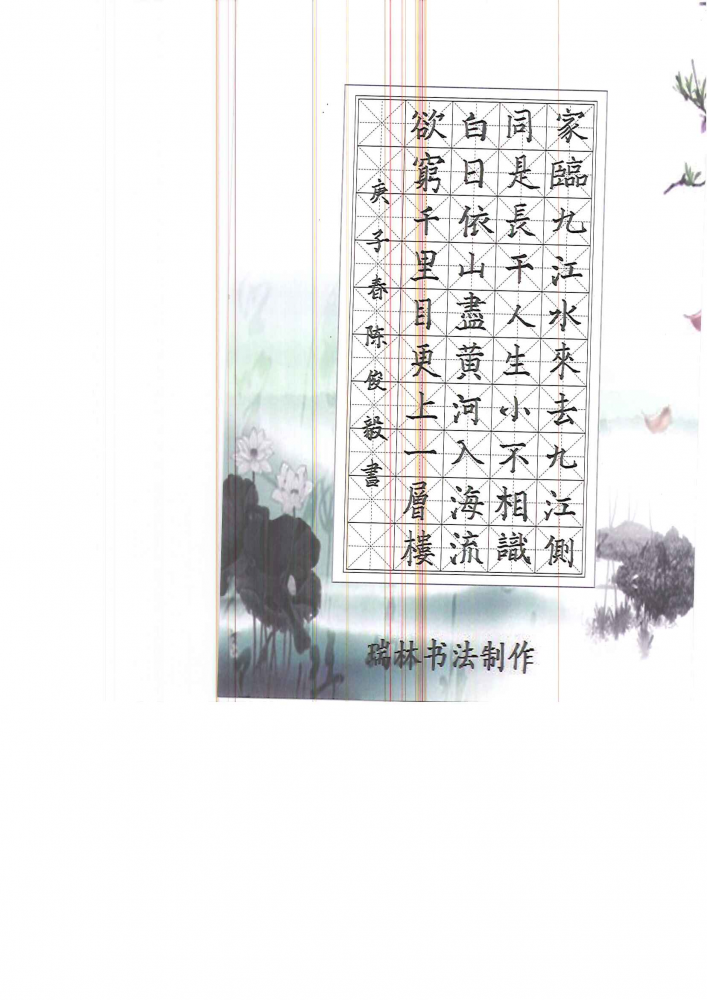 家臨九江水來去九江側
同是長干人生小不相識
白日依山盡黄河入海流
欲窮千里目更上一層樓
庚子春陈俊毅書
瑞林书法制作